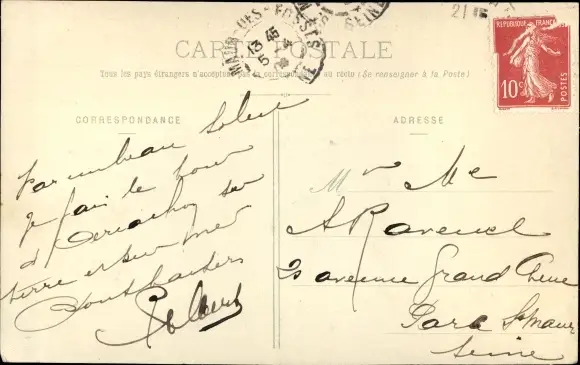 CARTE POSTALE
Tous les pays étrangers n'acceptent pas la correspondance au recto (Se renseigner à la Poste)
REPUBLIQUE FRANÇAISE
10c
POSTES
13 45
5
CORRESPONDANCE
Par un beau soleil
je fais le tour
d'Arcachon sur
terre et sur mer
Bons baisers
ADRESSE
Mr Me
A Ravenel
avenue Grand Chene
Parc St Maur
Seine